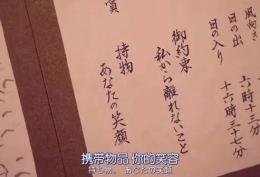 風向き
日の出 六時十三分
日の入り 十六時三十七分
御約束
私から離れないこと
持物
あなたの笑顔
賞
携带物品 你的笑容
持ち物、 あなたの笑顔